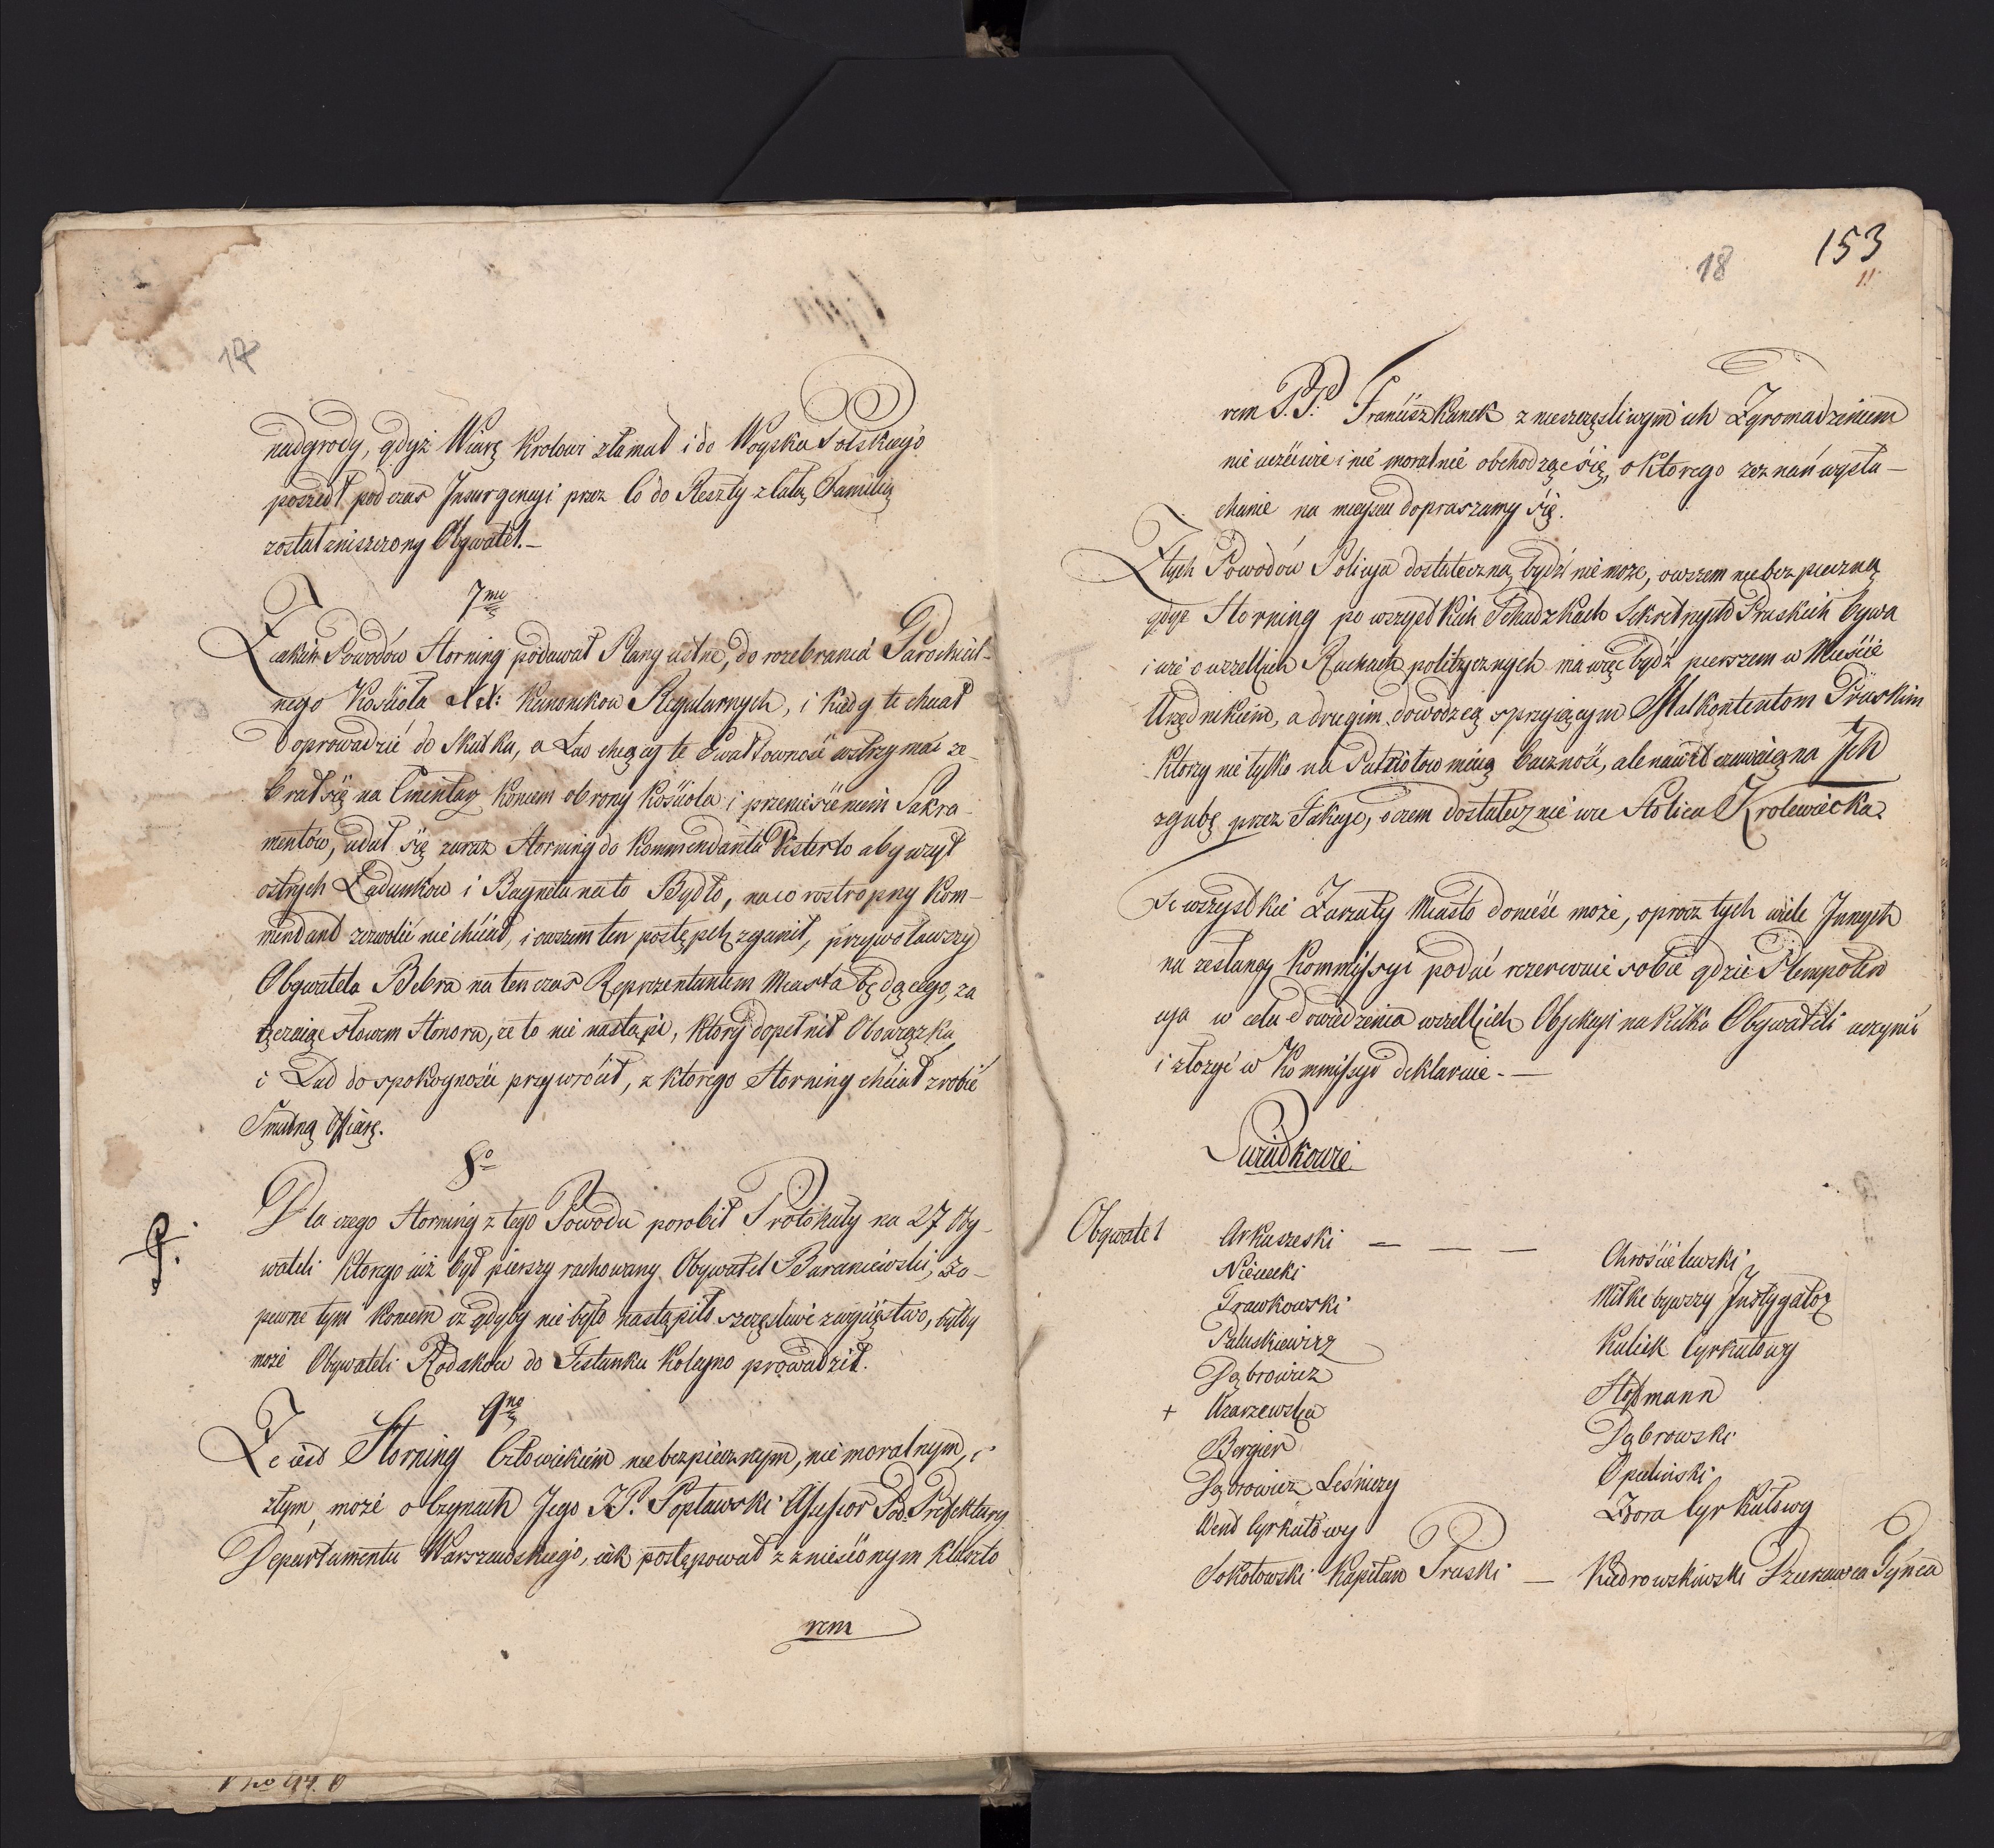 17
nadgrody, gdyż Wiarę Krolowi złamał i do Woyska Polskiego
poszedł pod czas Insurgencyi przez Co do Reszty z Całą Familią
został zniszczony Obywatel.—
7mo
Z iakich Powodów Horning podawał Plany ustne, do rozebrania Parochial-
nego Kościoła XX: Kanonikow Regularnych, i kiedy te chciał
Doprowadzić do Skutku, a Lud chcący te Gwałtowność wstrzymać ze-
brał się na Cmentarz Koncem obrony Kościoła i przeniesieniem Sakra-
mentów, udał się zaraz Horning do Kommendanta aby użył
ostrych Ładunkow i Bagneta na to Bydło, na co rostropny Kom-
mendant zezwolić nie chciał, i owszem ten postępek zganił, przywoławszy
Obywatela Bebra na ten czas Reprezentantem Miasta będącego, za
ręczaiąc słowem Honoru, że to nie nastąpi, który dopełnił Obowiązku,
i Lud do spokoyności przywrócił, z ktorego Horning chciał zrobić
Smutną Ofiarę.
8o
Dla czego Horning z tego Powodu porobił Protokuły na 27 Oby-
wateli Ktorego iuż był pierszy rachowany Obywatel Baraniewski, za-
pewne tym Koncem iż gdyby nie było nastąpiło szczęsliwe zwycięstwo, byłby
może Obywateli Rodakow do Festunku koleyno prowadził.
9no
Że iest Horning Człowiekiem niebezpiecznym, nie moralnym, i
złym, może o Czynach Jego JP. Popławski Assessor Pod-Prefektury
Departamentu Warszawskiego, iak postępował z zniesionym Klaszto
rem
18
153
11
rem P.P. Franciszkanek z nieszczęsliwym ich Zgromadzeniem
nie uczciwie i nie moralnie obchodząc się, o ktorego zeznań wysłu-
chanie na mieyscu dopraszamy się.
Z tych Powodów Policya dostateczną bydź nie może, owszem niebezpieczną
gdyż Horning po wszystkich Schadzkach Sekretnych Pruskich bywa
i wie o wszelkich Ruchach politycznych ma więc bydź pierszem w Mieście
Urzędnikiem, a drugim dowodzcą sprzyiącym Malkontentom Pruskim
Ktorzy nie tylko na Patriotow maią baczność, ale nawet czuwaią na Ich
zgubę przez Fakcye, o czem dostatecznie wie Stolica Krolewiecka.
Te wszystkie Zarzuty Miasto donieść może, oprocz tych wiele Innych
na zesłaney Kommissyi podać rezerwuie sobie gdzie Plempoten
cya w celu dowiedzenia wszelkich Objekcyi na kilku Obywateli uczynić
i złożyć w Kommissyi deklaruie.—
Swiadkowie
Obywatel Arkuszeski — — — Chrościelewski
Niemecki Milke bywszy Instygator
Trawkowski Kulick Cyrkułowy
Paluskiewicz Hoffmann
Dąbrowicz Dąbrowski
+ Uzarzewska Opalinski
Bergier Zdora Cyrkułowy
Dąbrowicz Leśniczy
Wend Cyrkułowy
Sokołowski Kapitan Pruski — Kiedrowski